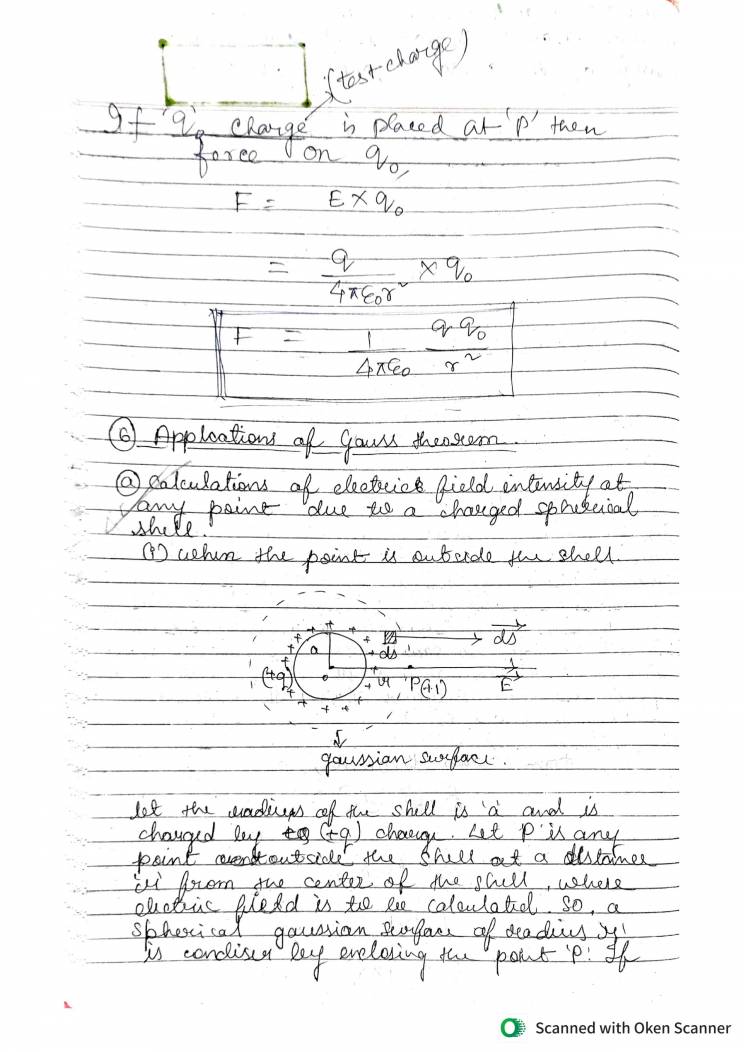 (test charge)
If 'q₀' charge is placed at 'P' then
force on q₀,
F = E × q₀
= q / 4πε₀r² × q₀
F = 1 / 4πε₀ q q₀ / r²
⑥ Applcations of Gauss theorem.
ⓐ Calculations of electrick field intensity at
any point due to a charged spherical
shell.
(i) when the point is outside the shell.
a ds ds
(+q) o r P(+1) E
gaussian surface.
let the radius of the shell is 'a' and is
charged by (+q) charge. Let P is any
point outside the shell at a distance
'r' from the center of the shell, where
electric field is to be calculated. So, a
spherical gaussian surface of radius 'r'
is condiser by enclosing the point 'P'. If
Scanned with Oken Scanner